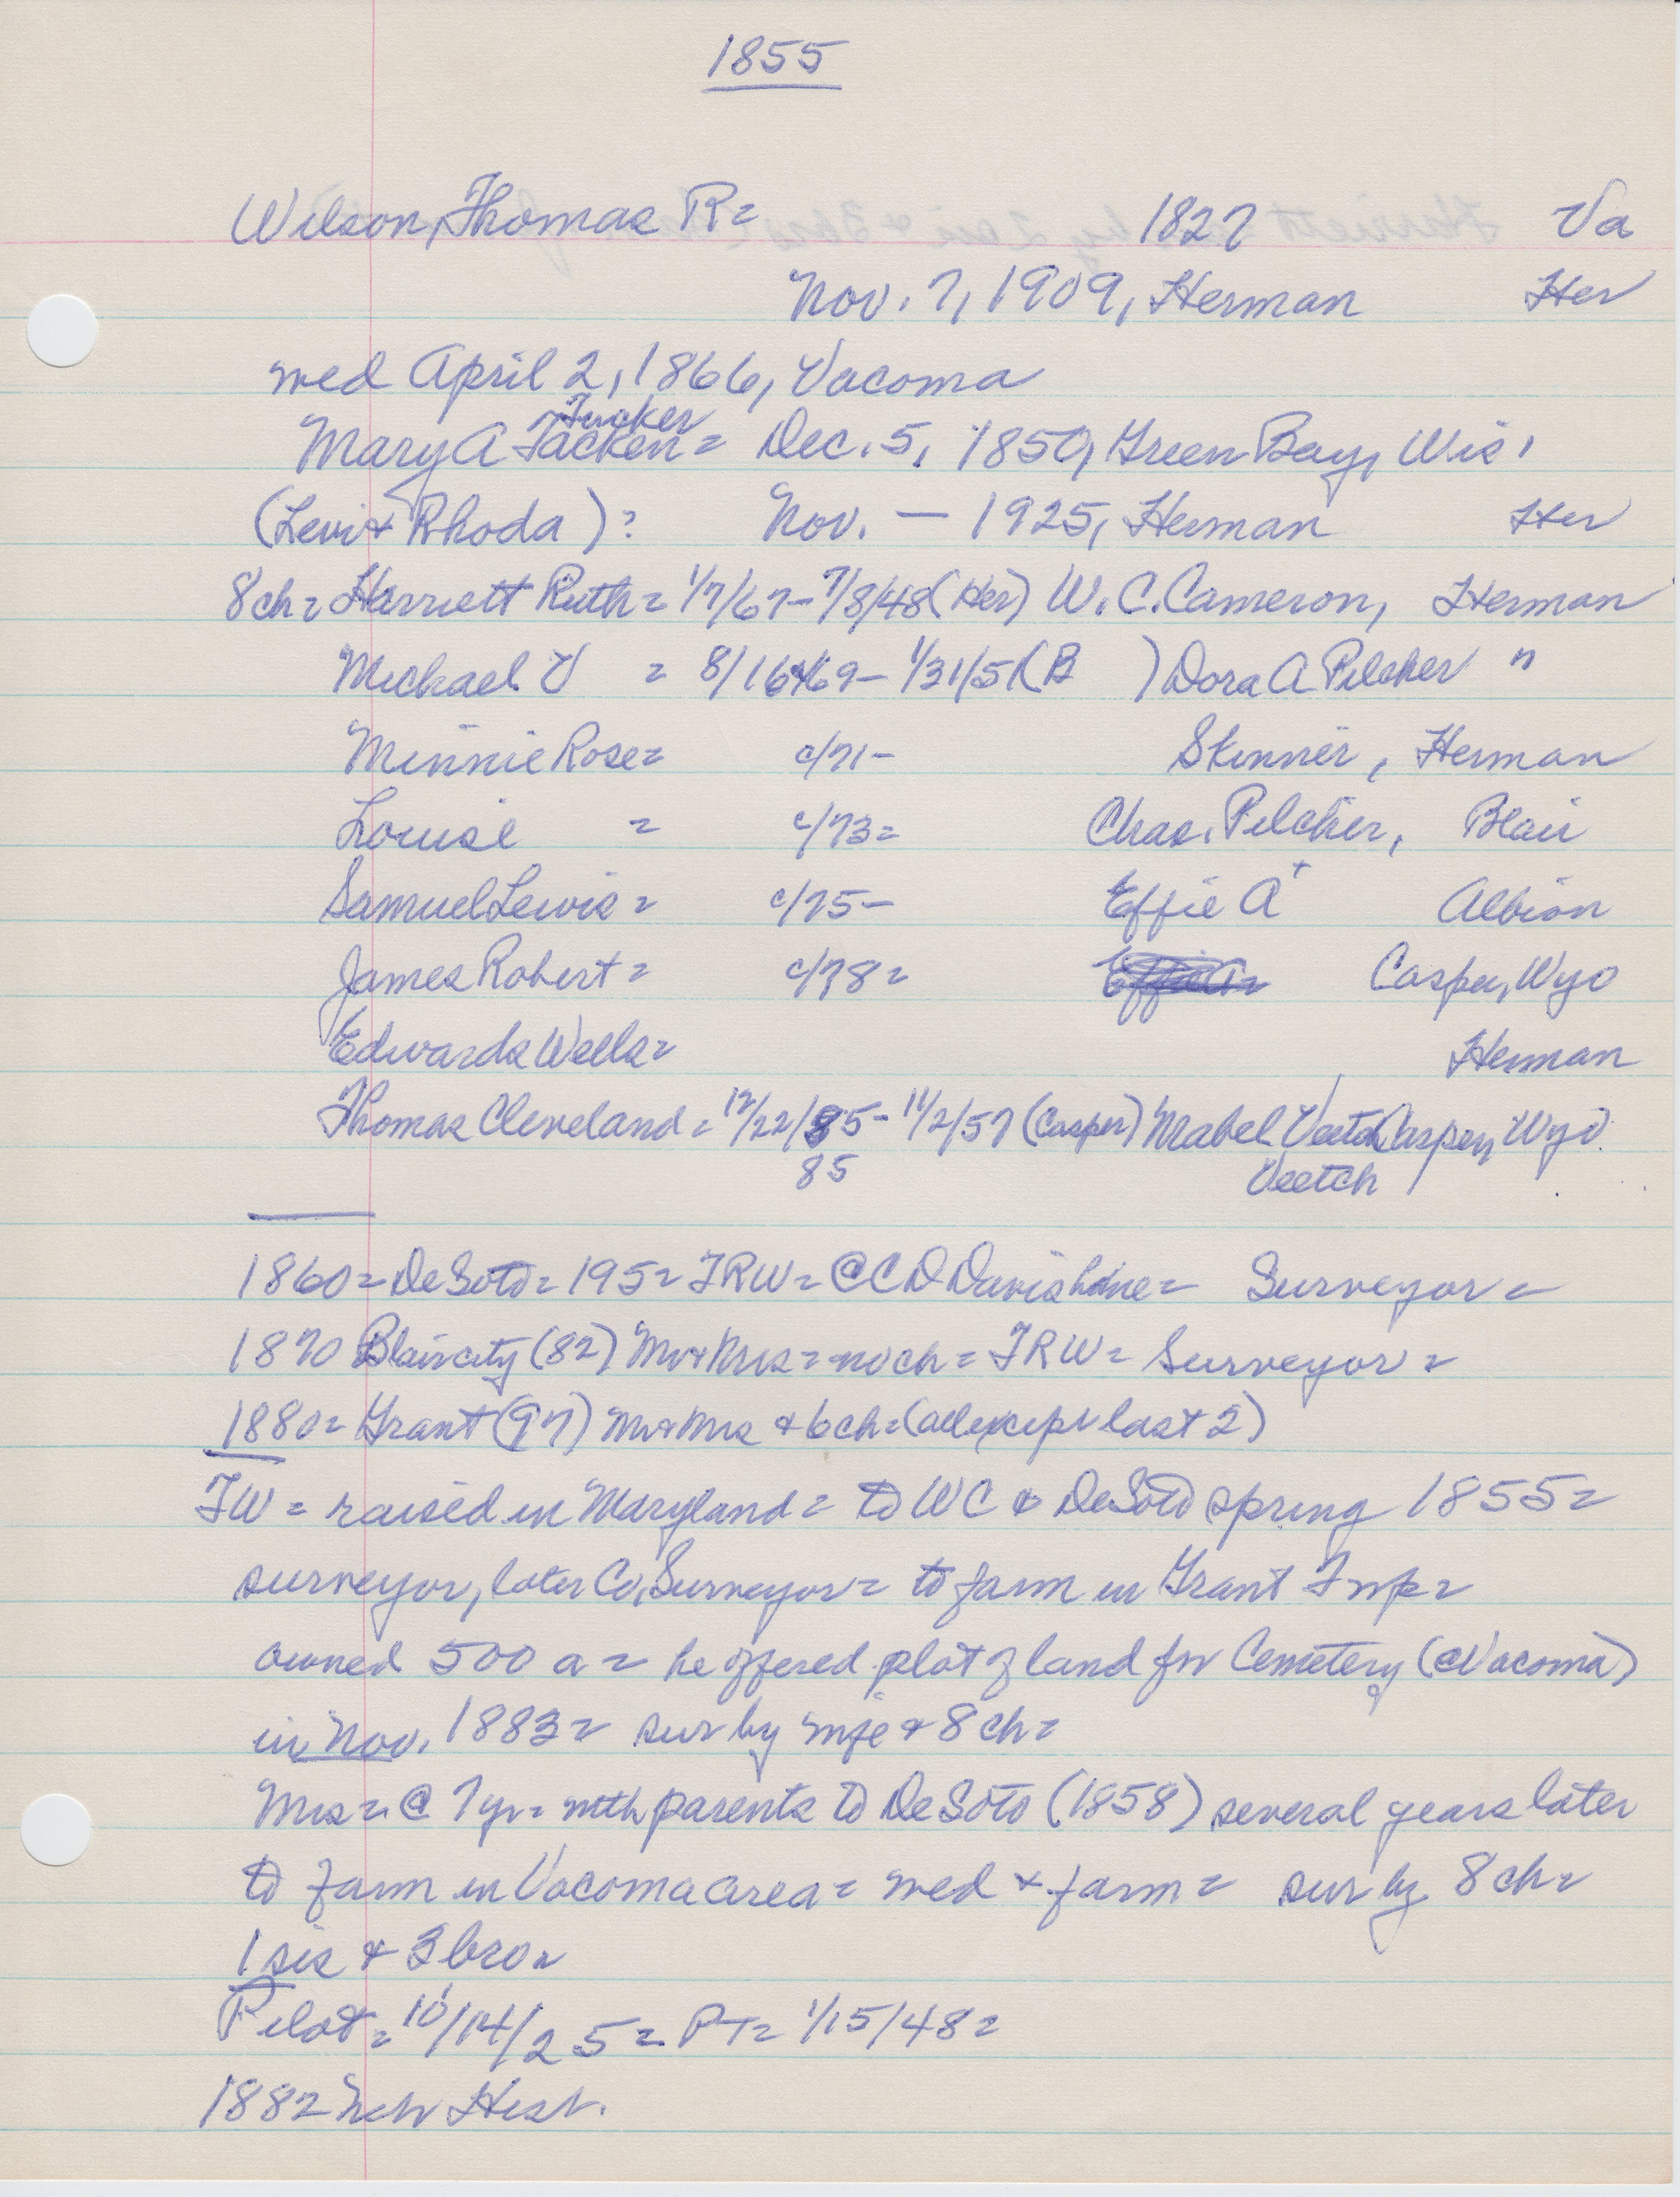 1855
Wilson, Thomas R = 1827 Va
Nov. 7, 1909, Herman Her
med April 2, 1866, Vacoma
Tucker
Mary A Tacken = Dec. 5, 1850, Green Bay, Wis.
(Levi & Rhoda)? Nov. — 1925, Herman Her
8 ch = Harriett Ruth = 1/7/67 - 7/8/48 (Her) W. C. Cameron, Herman
Michael V = 8/16/69 - 1/31/51 (B ) Dora A Pilcher "
Minnie Rose = c/71 - Skinner, Herman
Louise = c/73 = Chas. Pilcher, Blair
Samuel Lewis = c/75 - Effie A + Albion
James Robert = c/78 = Casper, Wyo
Edwards Wells = Herman
Thomas Cleveland = 12/22/85 - 11/2/57 (Casper) Mabel Veetch Casper, Wyo.
85 Veetch
1860 = De Soto = 195 = TRW = @ C D Davis home = Surveyor =
1870 Blair city (82) Mr & Mrs = no ch = TRW = Surveyor =
1880 = Grant (97) Mr & Mrs & 6 ch = (all except last 2)
TW = raised in Maryland = to WC & De Soto spring 1855 =
surveyor, later Co. Surveyor = to farm in Grant Twp =
owned 500 a = he offered plot of land for Cemetery (@ Vacoma)
in Nov. 1883 = sur by wife & 8 ch =
Mrs = @ 7 yr = with parents to De Soto (1858) several years later
to farm in Vacoma area = med & farm = sur by 8 ch =
1 sis & 3 bro =
Pilot = 10/14/25 = PT = 1/15/48 =
1882 Neb Hist.